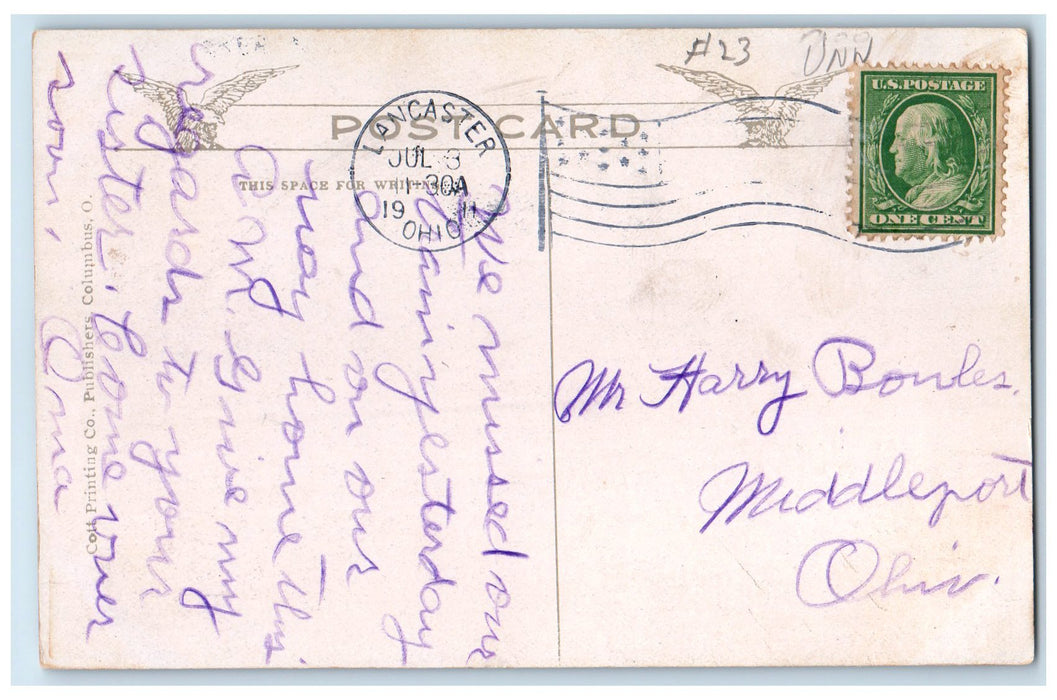 #23
POST CARD
THIS SPACE FOR WRITING
LANCASTER
JUL 3
1-30A
19 11
OHIO
U.S. POSTAGE
ONE CENT
Mr Harry Bowles.
Middleport
Ohio.
We missed our
train yesterday
and on our
way home this
A.M. Give my
regards to your
sister. Come over
soon.
Oma
Cott Printing Co., Publishers, Columbus, O.